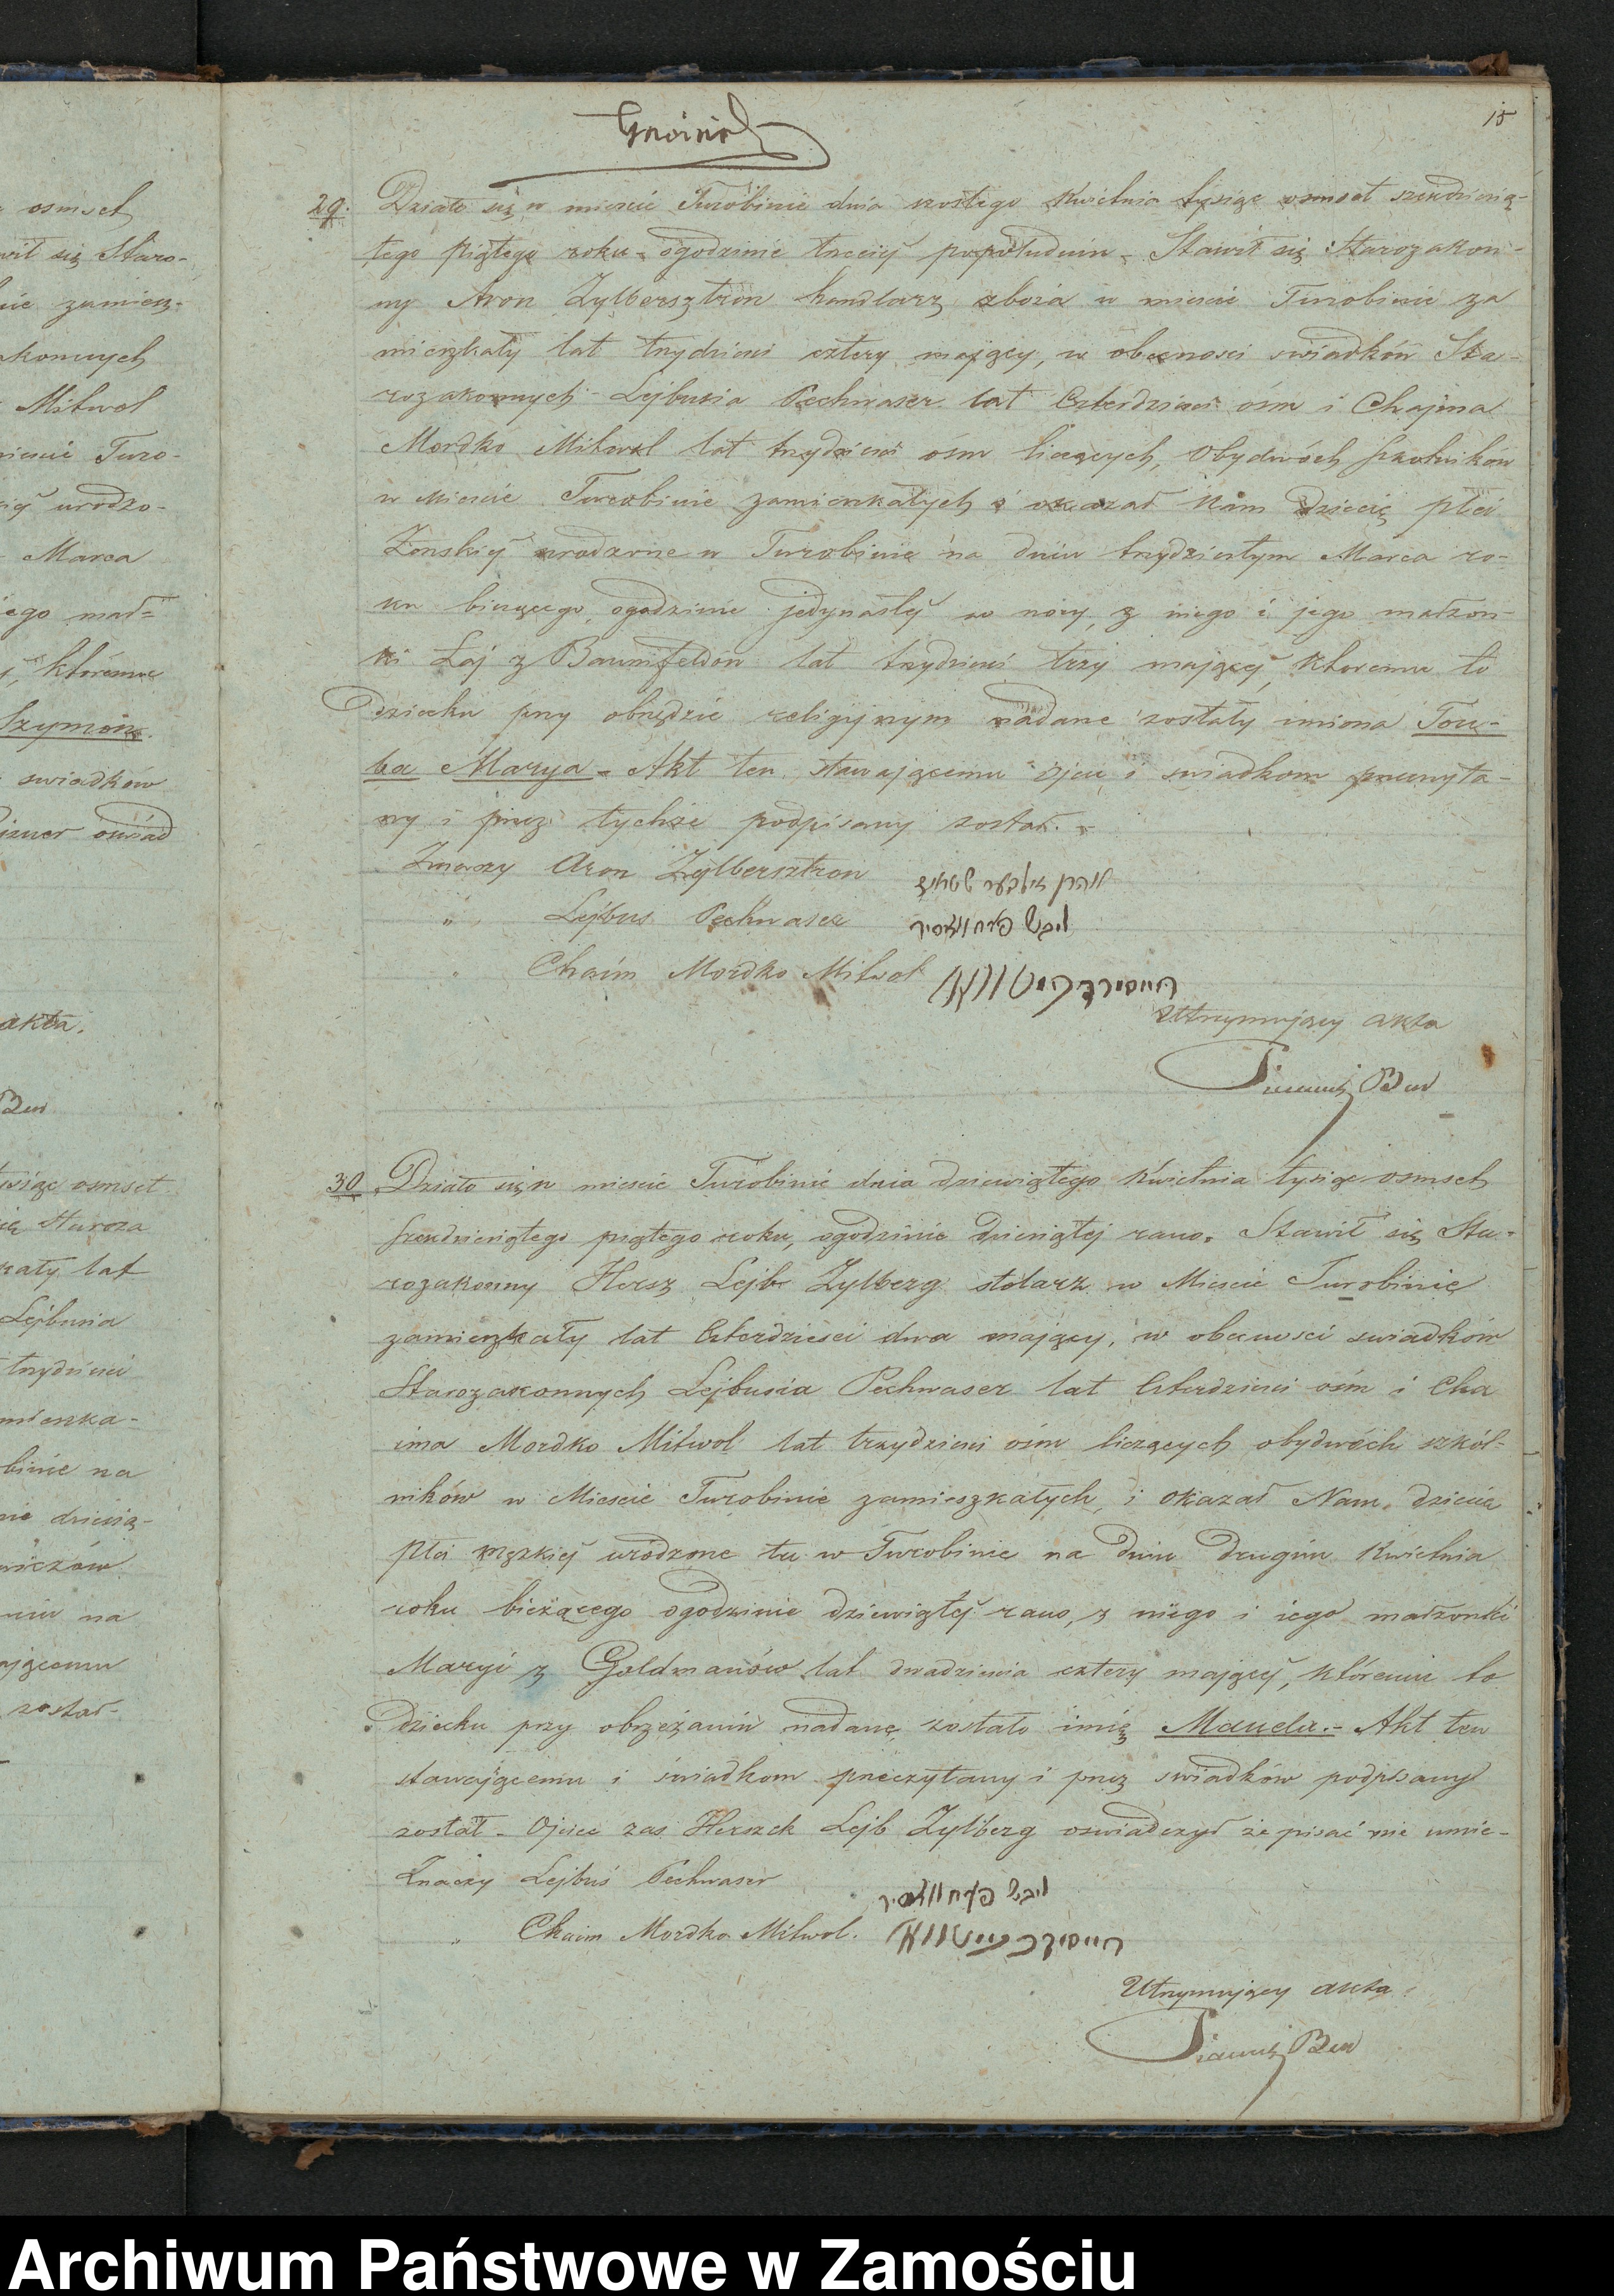 15
29. Działo się w mieście Turobinie dnia szóstego Kwietnia tysiąc osmset szesdziesią-
tego piątego roku - ogodzinie trzeciej popołudniu - Stawił się Starozakon-
ny Aron Zylbersztron handlarz zboża w mieście Turobinie za
mieszkały lat trzydzieści cztery mający, w obecności świadków Sta-
rozakonnych Lejbusia Pechwaser lat Czterdzieści ósm i Chajma
Mordko Mitwol lat trzydzieści ósm liczących, Obydwóch szkolników
w Mieście Turobinie zamieszkałych i okazał Nam Dziecię płci
Żeńskiej urodzone w Turobinie na dniu trzydziestym Marca ro-
ku bieżącego, ogodzinie jedynastej w nocy, z niego i jego małżon-
ki Łaj z Baumfeldów lat trzydzieści trzy mającej, któremu to
Dziecku przy obrzędzie religijnym nadane zostały imiona Tau-
ba Marya - Akt ten stawającemu Ojcu i świadkom przeczyta-
ny i przez tychże podpisany został. -
Znaczy Aron Zylbersztron
" Lejbus Pechwaser ליבש פעך וואסיר
" Chaim Mordko Mitwol
Utrzymujący akta
30 Działo się w mieście Turobinie dnia dziewiątego Kwietnia tysiąc osmset
szesdziesiątego piątego roku, ogodzinie dziesiątej rano. Stawił się Sta-
rozakonny Hersz Lejb Zylberg stolarz w Mieście Turobinie
zamieszkały lat Czterdzieści dwa mający, w obecności swiadków
Starozakonnych Lejbusia Pechwaser lat Czterdzieści ósm i Cha
ima Mordko Mitwol lat trzydzieści ósm liczących obydwóch szkól-
ników w Mieście Turobinie zamieszkałych, i okazał Nam dziecię
płci męzkiej urodzone tu w Turobinie na dniu drugim Kwietnia
roku bieżącego ogodzinie dziewiątej rano, z niego i iego małżonki
Maryi z Goldmanów lat dwadzieścia cztery mającej, któremu to
Dziecku przy obrzezaniu nadane zostało imię Manela. - Akt ten
stawającemu i świadkom przeczytany i przez swiadków podpisany
został - Ojciec zas Herszek Lejb Zylberg oswiadczył że pisać nie umie -
Znaczy Lejbuś Pechwaser ליבש פעך וואסיר
" Chaim Mordko Mitwol.
Utrzymujący akta
osmset
wił się Staro-
nie zamiesz-
akonnych
Mitwol
mieście Turo-
urodzo-
Marca
iego mał-
któremu
Szymon.
swiadków
akta.
tysiąc osmset
Staroza
kały lat
Lejbusia
trzydzieści
mieszka-
binie na
nie dziesią-
wiczów
niu na
ającemu
został -
Archiwum Państwowe w Zamościu